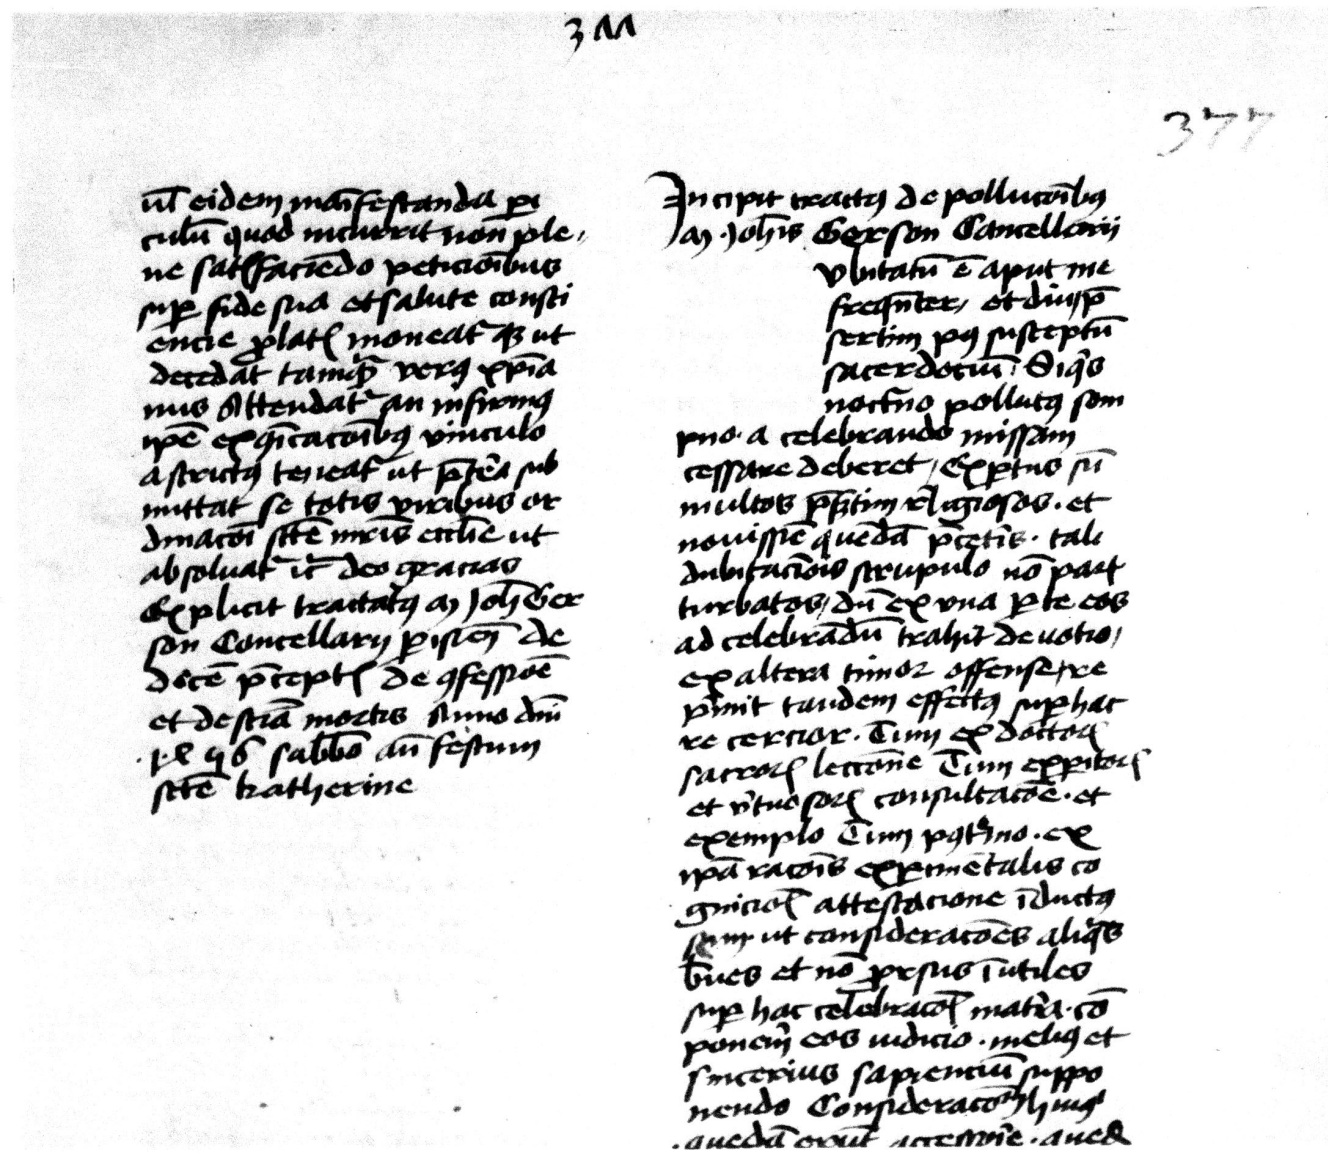 311
377
ul̄ eidem maīfestanda ꝑi
culū quod incurrit non ple
ne satsfaciēdo peticioībus
suꝑ fide sua et salute consci
encie ꝓlatꝭ moneat᷑ ut
decedat tamꝙ̄ verꝰ xp̄ia
nus Attendat᷑ an infirmꝰ
ip̄e exꝯīcacōībꝰ vinculo
astrictꝰ teneat᷑ ut p̄tēa sub
mittat se totis viribus or
dinacōi sctē mr̄is eccl̄ie ut
absoluat᷑ deo gracias
Explicit tractatꝰ m Joh̄ Ger
son Cancellarij ꝑisien̄ de
decē p̄ceptꝭ de ꝯfessiōe
et de sciā mortis Anno dn̄i
sabb̄o an̄ festum
sctē katherine
Incipit tractꝰ de pollucōībꝰ
m Joh̄is Gerson Cancellarii
Vbitatū ē aput me
freqn̄ter et diu p̄
sertim pꝰ susceptū
sacerdociū Si qͥs
noct̄no pollutꝰ som
pno a celebrando missam
cessare deberet Exꝑtus sū
multos p̄stim religiosos et
nouissīe quēdā p̄cet̄is tali
dubitaciōis scrupulo nō part
turbatos dū ex vna ꝑte eos
ad celebrādū trahit deuotio
ex altera timor offense re
p̄mit tandem effectꝰ suꝑ hac
re cercior Tum ex doctorꝭ
sacrorꝭ lecciōne Tum exꝑitorꝭ
et v̄tuosorꝭ consultacōe et
exemplo Tum pꝰtͥmo ex
ip̄a racōis exꝑimētalis co
gniciōꝭ attestacione īductꝰ
sum ut consideracōes aliqͣs
b̄ues et nō ꝓrsus īutiles
suꝑ hac celebracōꝭ mat̄ia cō
ponem̄ eos iudicio meliꝰ et
sincerius sapienciū suppo
nendo Consideracōm huiꝰ
quedā erūt accessorie qued